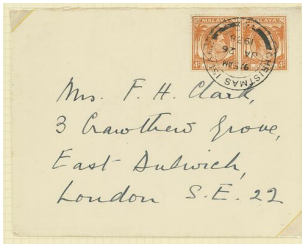 MALAYA MALAYA
CHRISTMAS
Mrs. F. H. Clark,
3 Crawthew Grove,
East Dulwich,
London S.E. 22